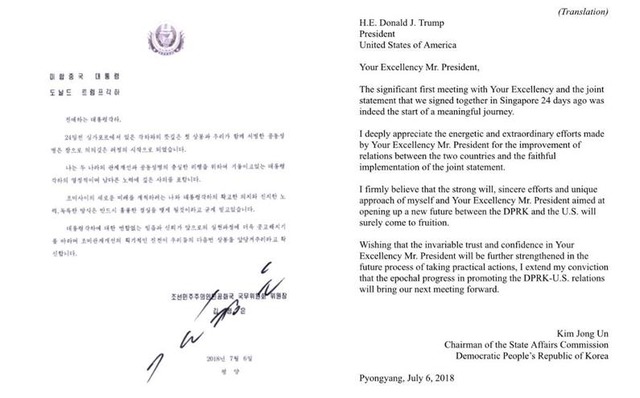 미합중국 대통령
도날드 트럼프각하
친애하는 대통령각하,
24일전 싱가포르에서 있은 각하와의 뜻깊은 첫 상봉과 우리가 함께 서명한 공동성
명은 참으로 의의깊은 려정의 시작으로 되였습니다.
나는 두 나라의 관계개선과 공동성명의 충실한 리행을 위하여 기울이고있는 대통령
각하의 열정적이며 남다른 노력에 깊은 사의를 표합니다.
조미사이의 새로운 미래를 개척하려는 나와 대통령각하의 확고한 의지와 진지한 노
력, 독특한 방식은 반드시 훌륭한 결실을 맺게 될것이라고 굳게 믿고있습니다.
대통령각하에 대한 변함없는 믿음과 신뢰가 앞으로의 실천과정에 더욱 공고해지기
를 바라며 조미관계개선의 획기적인 진전이 우리들의 다음번 상봉을 앞당겨주리라고 확
신합니다.
조선민주주의인민공화국 국무위원회 위원장
2018년 7월 6일
평 양
(Translation)
H.E. Donald J. Trump
President
United States of America
Your Excellency Mr. President,
The significant first meeting with Your Excellency and the joint
statement that we signed together in Singapore 24 days ago was
indeed the start of a meaningful journey.
I deeply appreciate the energetic and extraordinary efforts made
by Your Excellency Mr. President for the improvement of
relations between the two countries and the faithful
implementation of the joint statement.
I firmly believe that the strong will, sincere efforts and unique
approach of myself and Your Excellency Mr. President aimed at
opening up a new future between the DPRK and the U.S. will
surely come to fruition.
Wishing that the invariable trust and confidence in Your
Excellency Mr. President will be further strengthened in the
future process of taking practical actions, I extend my conviction
that the epochal progress in promoting the DPRK-U.S. relations
will bring our next meeting forward.
Kim Jong Un
Chairman of the State Affairs Commission
Democratic People's Republic of Korea
Pyongyang, July 6, 2018